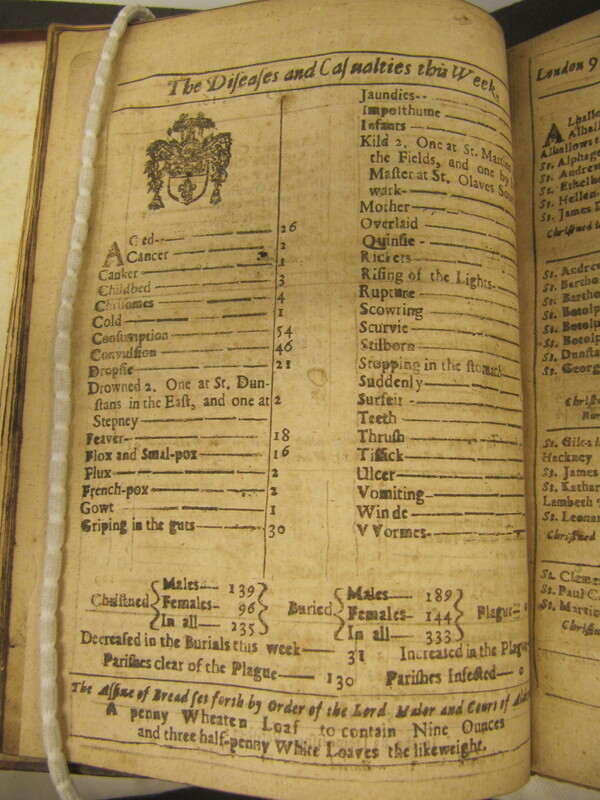 The Diſeaſes and Caſualties this Week.
AGed-- 26
Cancer 2
Canker 1
Childbed 3
Chriſomes 4
Cold 1
Conſumption 54
Convulſion 46
Dropſie 21
Drowned 2. One at St. Dun-
ſtans in the Eaſt, and one at 2
Stepney
Feaver 18
Flox and Smal-pox 16
Flux 2
French-pox 2
Gowt 1
Griping in the guts 30
Jaundies--
Impoſthume
Infants
Kild 2. One at St. Martins
the Fields, and one by
Maſter at St. Olaves Sou
wark
Mother
Overlaid
Quinſie -
Rickets
Riſing of the Lights
Rupture
Scowring
Scurvie
Stilborn
Stopping in the ſtomach
Suddenly
Surfeit -
Teeth
Thruſh
Tiſſick
Ulcer
Vomiting
Winde
VVormes
Chriſtned { Males 139 Females- 96 In all 235 } Buried { Males 189 Females- 144 In all 333 } Plague
Decreaſed in the Burials this week 31 Increaſed in the Plague
Pariſhes clear of the Plague 130 Pariſhes Infected 0
The Aſſize of Bread ſet forth by Order of the Lord Maior and Court of
A penny Wheaten Loaf to contain Nine Ounces
and three half-penny White Loaves the like weight.
London 9
Alhallows
St. Alphage
St. Andrew
St. Ethelb
St. Hellen
St. James D
Chriſtned
St. Andrew
St. Bartho
St. Bartho
St. Botolp
St. Botolp
St. Botolp
St. Dunſta
St. Georg
Chriſtn
St. Giles
Hackney
St. James
St. Kathar
Lambeth
St. Leonar
Chriſtned
St. Clemen
St. Paul C
St. Martin
Chriſtn